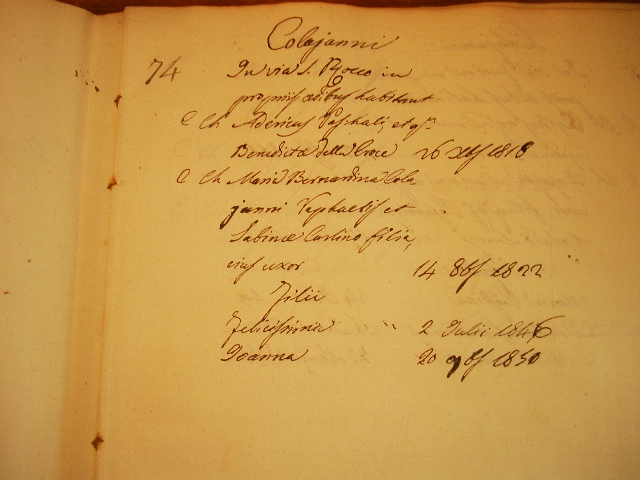 Colajanni
74 In via S. Rocco in
propriis ædibus habitant
C Ch Adericus Paschali, et q.m
Benedictæ della Croce 26 Xbs 1818
C Ch Maria Bernardina Cola
janni Raphaelis et
Sabinæ Carlino filia,
eius uxor 14 8bs 1822
Filii
Felicissima " 2 Julii 1846
Joanna 20 9bs 1850